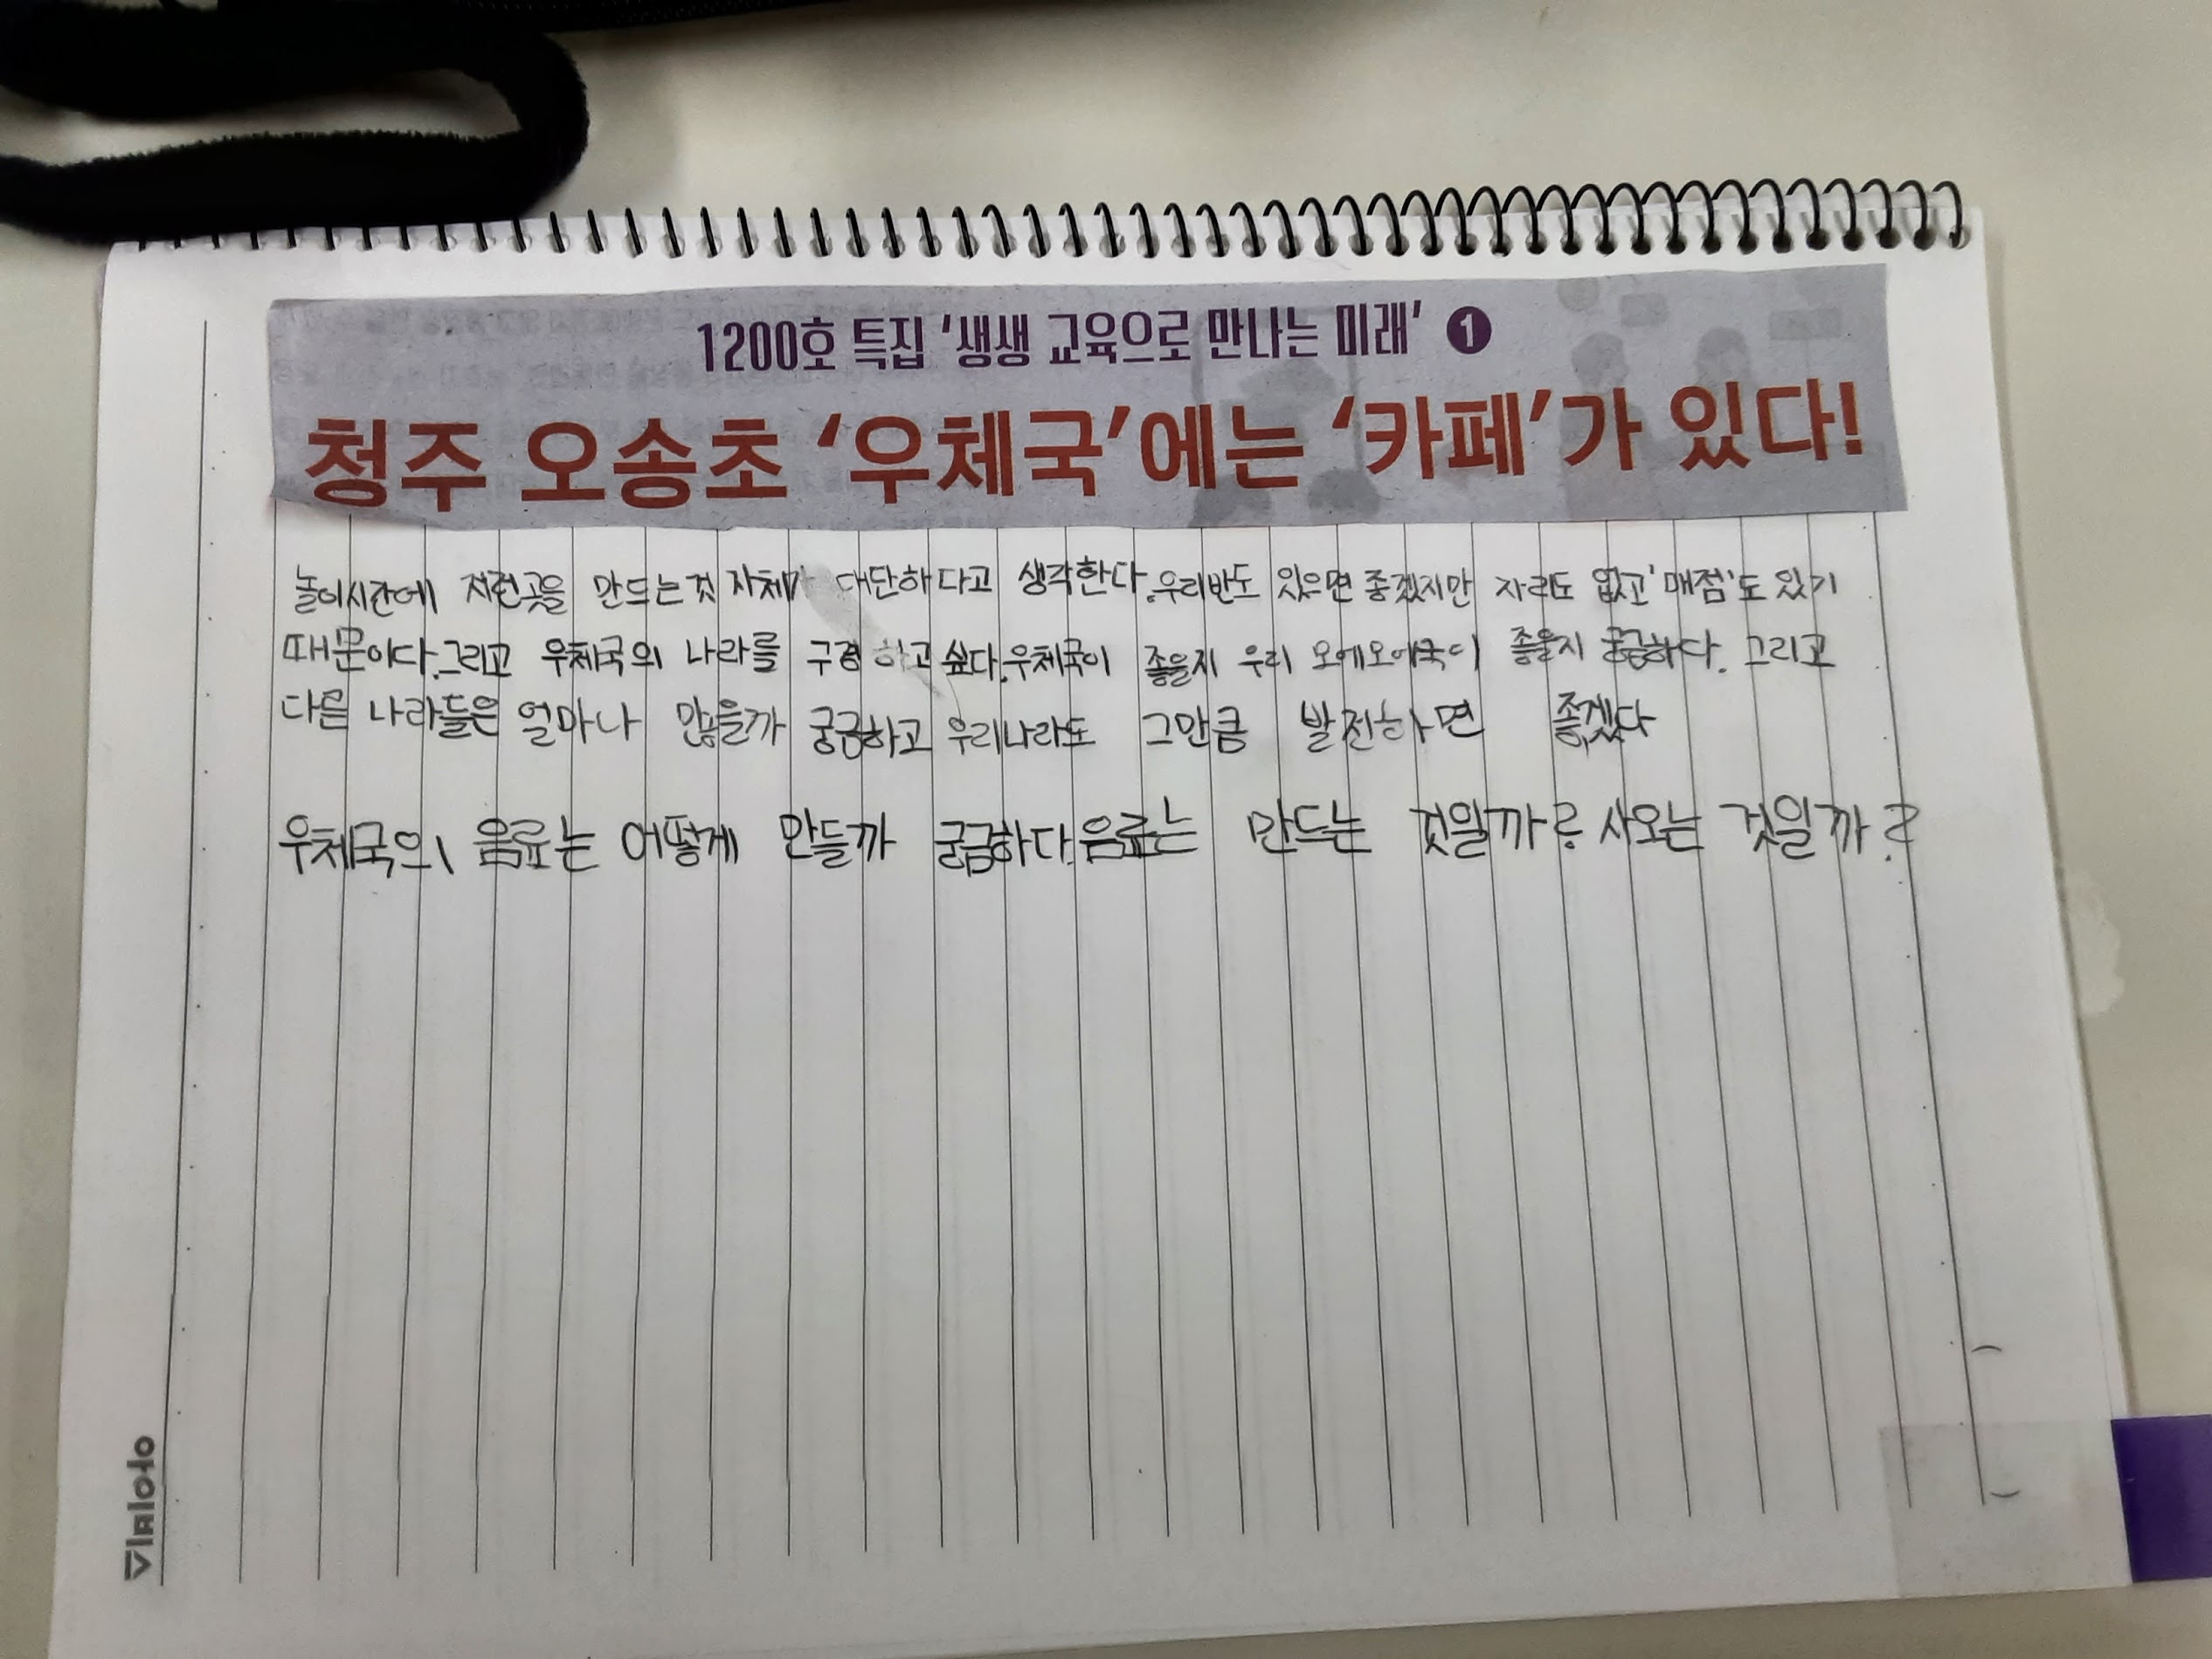 1200호 특집 '생생 교육으로 만나는 미래' ❶
청주 오송초 '우체국'에는 '카페'가 있다!
놀이시간에 저런곳을 만드는것 자체가 대단하다고 생각한다.우리반도 있으면 좋겠지만 자리도 없고 '매점'도 있기
때문이다.그리고 우체국의 나라를 구경하고 싶다.우체국이 좋을지 우리 오에오에국이 좋을지 궁금하다. 그리고
다른 나라들은 얼마나 많을까 궁금하고 우리나라도 그만큼 발전하면 좋겠다
우체국의 음료는 어떻게 만들까 궁금하다.음료는 만드는 것일까? 사오는 것일까?